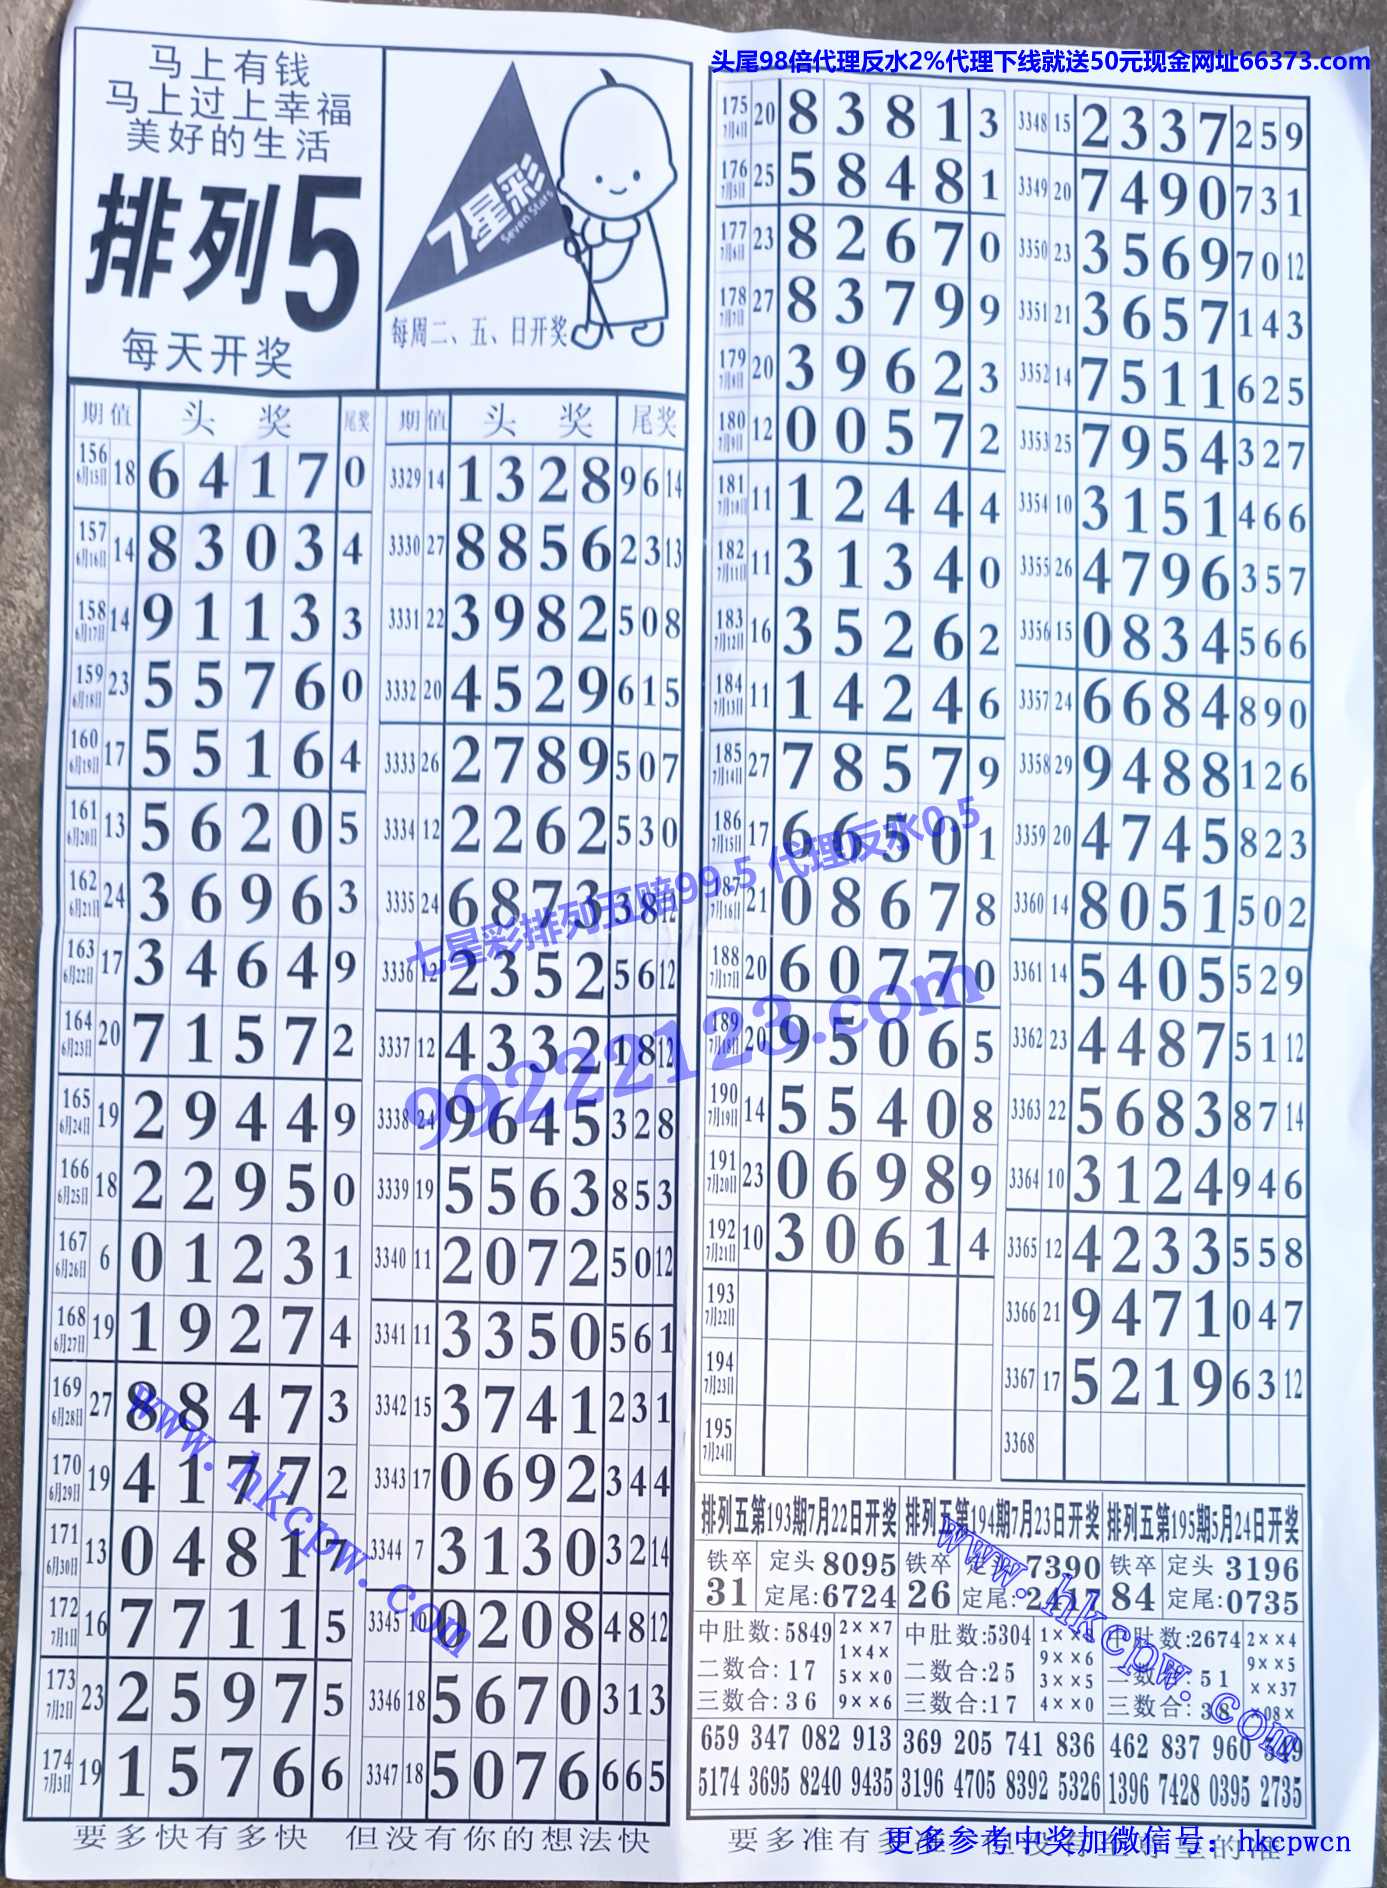 头尾98倍代理反水2%代理下线就送50元现金网址66373.com
马上有钱
马上过上幸福
美好的生活
排列5
每天开奖
7星彩
Seven Stars
每周二、五、日开奖
期 值 头 奖 尾奖
156 6月15日 18 6 4 1 7 0
157 6月16日 14 8 3 0 3 4
158 6月17日 14 9 1 1 3 3
159 6月18日 23 5 5 7 6 0
160 6月19日 17 5 5 1 6 4
161 6月20日 13 5 6 2 0 5
162 6月21日 24 3 6 9 6 3
163 6月22日 17 3 4 6 4 9
164 6月23日 20 7 1 5 7 2
165 6月24日 19 2 9 4 4 9
166 6月25日 18 2 2 9 5 0
167 6月26日 6 0 1 2 3 1
168 6月27日 19 1 9 2 7 4
169 6月28日 27 8 8 4 7 3
170 6月29日 19 4 1 7 7 2
171 6月30日 13 0 4 8 1 7
172 7月1日 16 7 7 1 1 5
173 7月2日 23 2 5 9 7 5
174 7月3日 19 1 5 7 6 6
期 值 头 奖 尾奖
3329 14 1 3 2 8 9 6 14
3330 27 8 8 5 6 2 3 13
3331 22 3 9 8 2 5 0 8
3332 20 4 5 2 9 6 1 5
3333 26 2 7 8 9 5 0 7
3334 12 2 2 6 2 5 3 0
3335 24 6 8 7 3 3 8 12
3336 12 2 3 5 2 5 6 12
3337 12 4 3 3 2 1 8 12
3338 24 9 6 4 5 3 2 8
3339 19 5 5 6 3 8 5 3
3340 11 2 0 7 2 5 0 12
3341 11 3 3 5 0 5 6 1
3342 15 3 7 4 1 2 3 1
3343 17 0 6 9 2 3 4 4
3344 7 3 1 3 0 3 2 14
3345 10 0 2 0 8 4 8 12
3346 18 5 6 7 0 3 1 3
3347 18 5 0 7 6 6 6 5
175 7月4日 20 8 3 8 1 3
176 7月5日 25 5 8 4 8 1
177 7月6日 23 8 2 6 7 0
178 7月7日 27 8 3 7 9 9
179 7月8日 20 3 9 6 2 3
180 7月9日 12 0 0 5 7 2
181 7月10日 11 1 2 4 4 4
182 7月11日 11 3 1 3 4 0
183 7月12日 16 3 5 2 6 2
184 7月13日 11 1 4 2 4 6
185 7月14日 27 7 8 5 7 9
186 7月15日 17 6 6 5 0 1
187 7月16日 21 0 8 6 7 8
188 7月17日 20 6 0 7 7 0
189 7月18日 20 9 5 0 6 5
190 7月19日 14 5 5 4 0 8
191 7月20日 23 0 6 9 8 9
192 7月21日 10 3 0 6 1 4
193 7月22日
194 7月23日
195 7月24日
3348 15 2 3 3 7 2 5 9
3349 20 7 4 9 0 7 3 1
3350 23 3 5 6 9 7 0 12
3351 21 3 6 5 7 1 4 3
3352 14 7 5 1 1 6 2 5
3353 25 7 9 5 4 3 2 7
3354 10 3 1 5 1 4 6 6
3355 26 4 7 9 6 3 5 7
3356 15 0 8 3 4 5 6 6
3357 24 6 6 8 4 8 9 0
3358 29 9 4 8 8 1 2 6
3359 20 4 7 4 5 8 2 3
3360 14 8 0 5 1 5 0 2
3361 14 5 4 0 5 5 2 9
3362 23 4 4 8 7 5 1 12
3363 22 5 6 8 3 8 7 14
3364 10 3 1 2 4 9 4 6
3365 12 4 2 3 3 5 5 8
3366 21 9 4 7 1 0 4 7
3367 17 5 2 1 9 6 3 12
3368
七星彩排列五赔99.5 代理反水0.5
99222123.com
www.hkcpw.com
排列五第193期7月22日开奖
铁卒 31 定头 8095
定尾:6724
中肚数:5849
二数合:17
三数合:36
2××7
1×4×
5××0
9××6
659 347 082 913
5174 3695 8240 9435
排列五第194期7月23日开奖
铁卒 26 定头 7390
定尾:2417
中肚数:5304
二数合:25
三数合:17
9××6
3××5
4××0
369 205 741 836
3196 4705 8392 5326
排列五第195期5月24日开奖
铁卒 84 定头 3196
定尾:0735
中肚数:2674
二数合:51
三数合:38
2××4
9××5
××37
×08×
462 837 960
1396 7428 0395 2735
www.hkcpw.com
要多快有多快 但没有你的想法快
要多准有多准
更多参考中奖加微信号:hkcpwcn